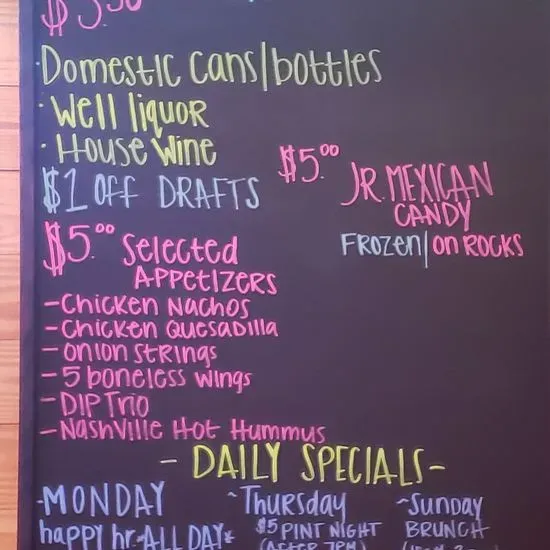 $3.50
·Domestic cans/bottles
·Well liquor
·House Wine
$1 OFF DRAFTS
$5.00 JR. MEXICAN
CANDY
FROZEN/ON ROCKS
$5.00 Selected
APPETIZERS
-Chicken Nachos
-Chicken Quesadilla
-Onion Strings
-5 boneless wings
-Dip Trio
-Nashville Hot Hummus
- DAILY SPECIALS-
-MONDAY
happy hr-ALL DAY*
~Thursday
$5 PINT NIGHT
(AFTER 7PM)
~Sunday
BRUNCH